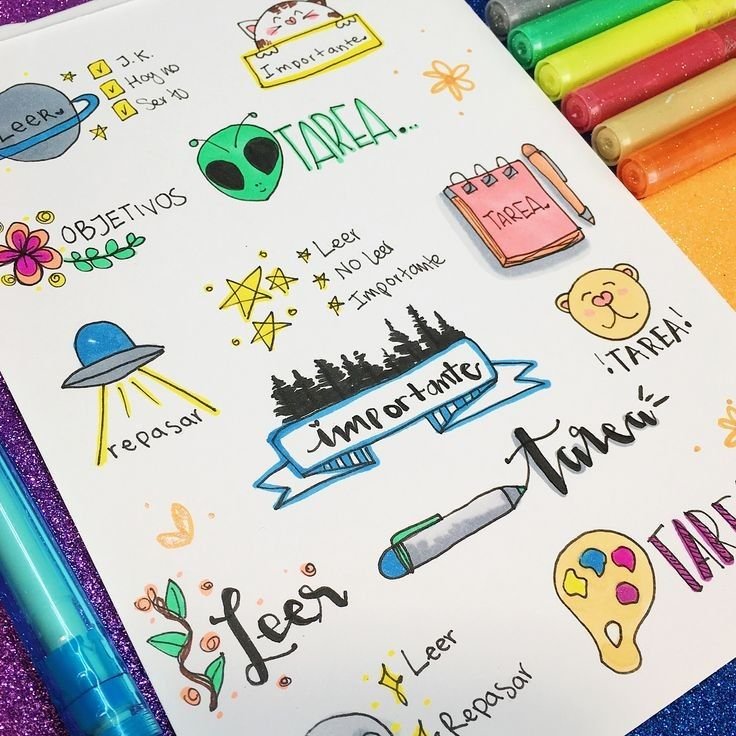 Importante
J.K.
Hay no
Ser tú
LEER
TAREA...
OBJETIVOS
TAREA
Leer
NO leer
Importante
¡TAREA!
repasar
importante
tarea
TAREA
Leer
Leer
Repasar